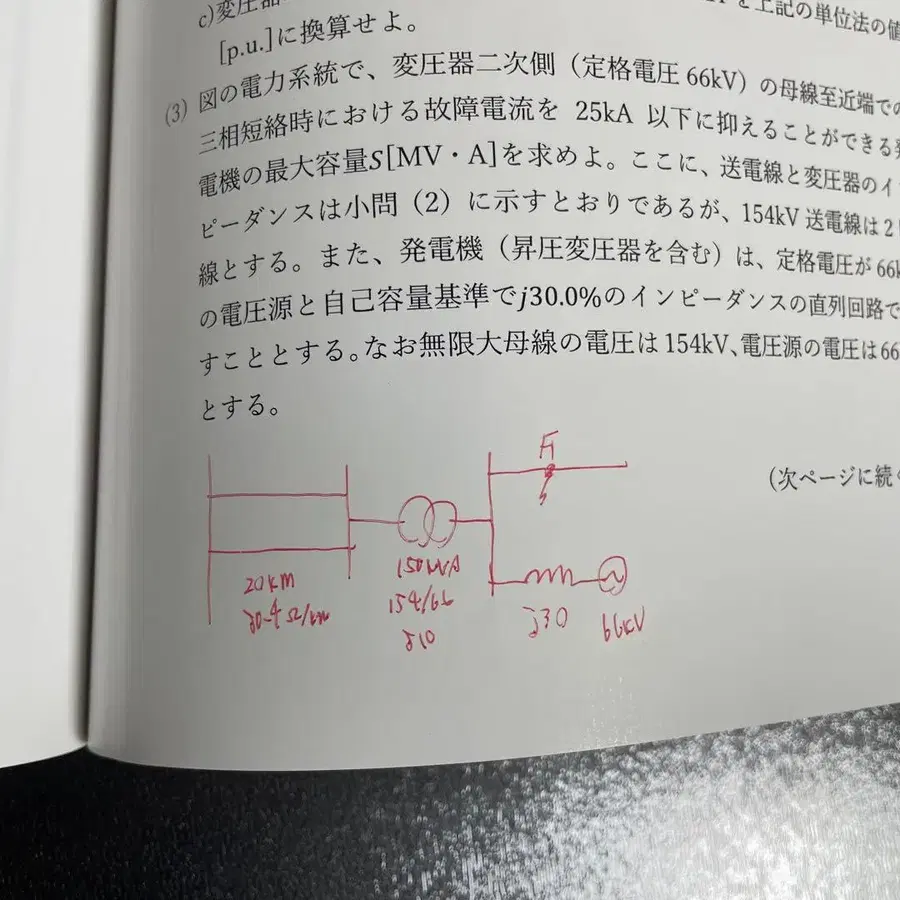 c)変圧器
と上記の単位法の値
[p.u.]に換算せよ。
(3) 図の電力系統で、変圧器二次側（定格電圧66kV）の母線至近端での
三相短絡時における故障電流を 25kA 以下に抑えることができる発
電機の最大容量S[MV・A]を求めよ。ここに、送電線と変圧器のイ
ピーダンスは小問（2）に示すとおりであるが、154kV 送電線は2
線とする。また、発電機（昇圧変圧器を含む）は、定格電圧が66k
の電圧源と自己容量基準でj30.0%のインピーダンスの直列回路で
すこととする。なお無限大母線の電圧は154kV、電圧源の電圧は66
とする。
(次ページに続
20km
j0.4Ω/km
154/66
j10
j30
66kV